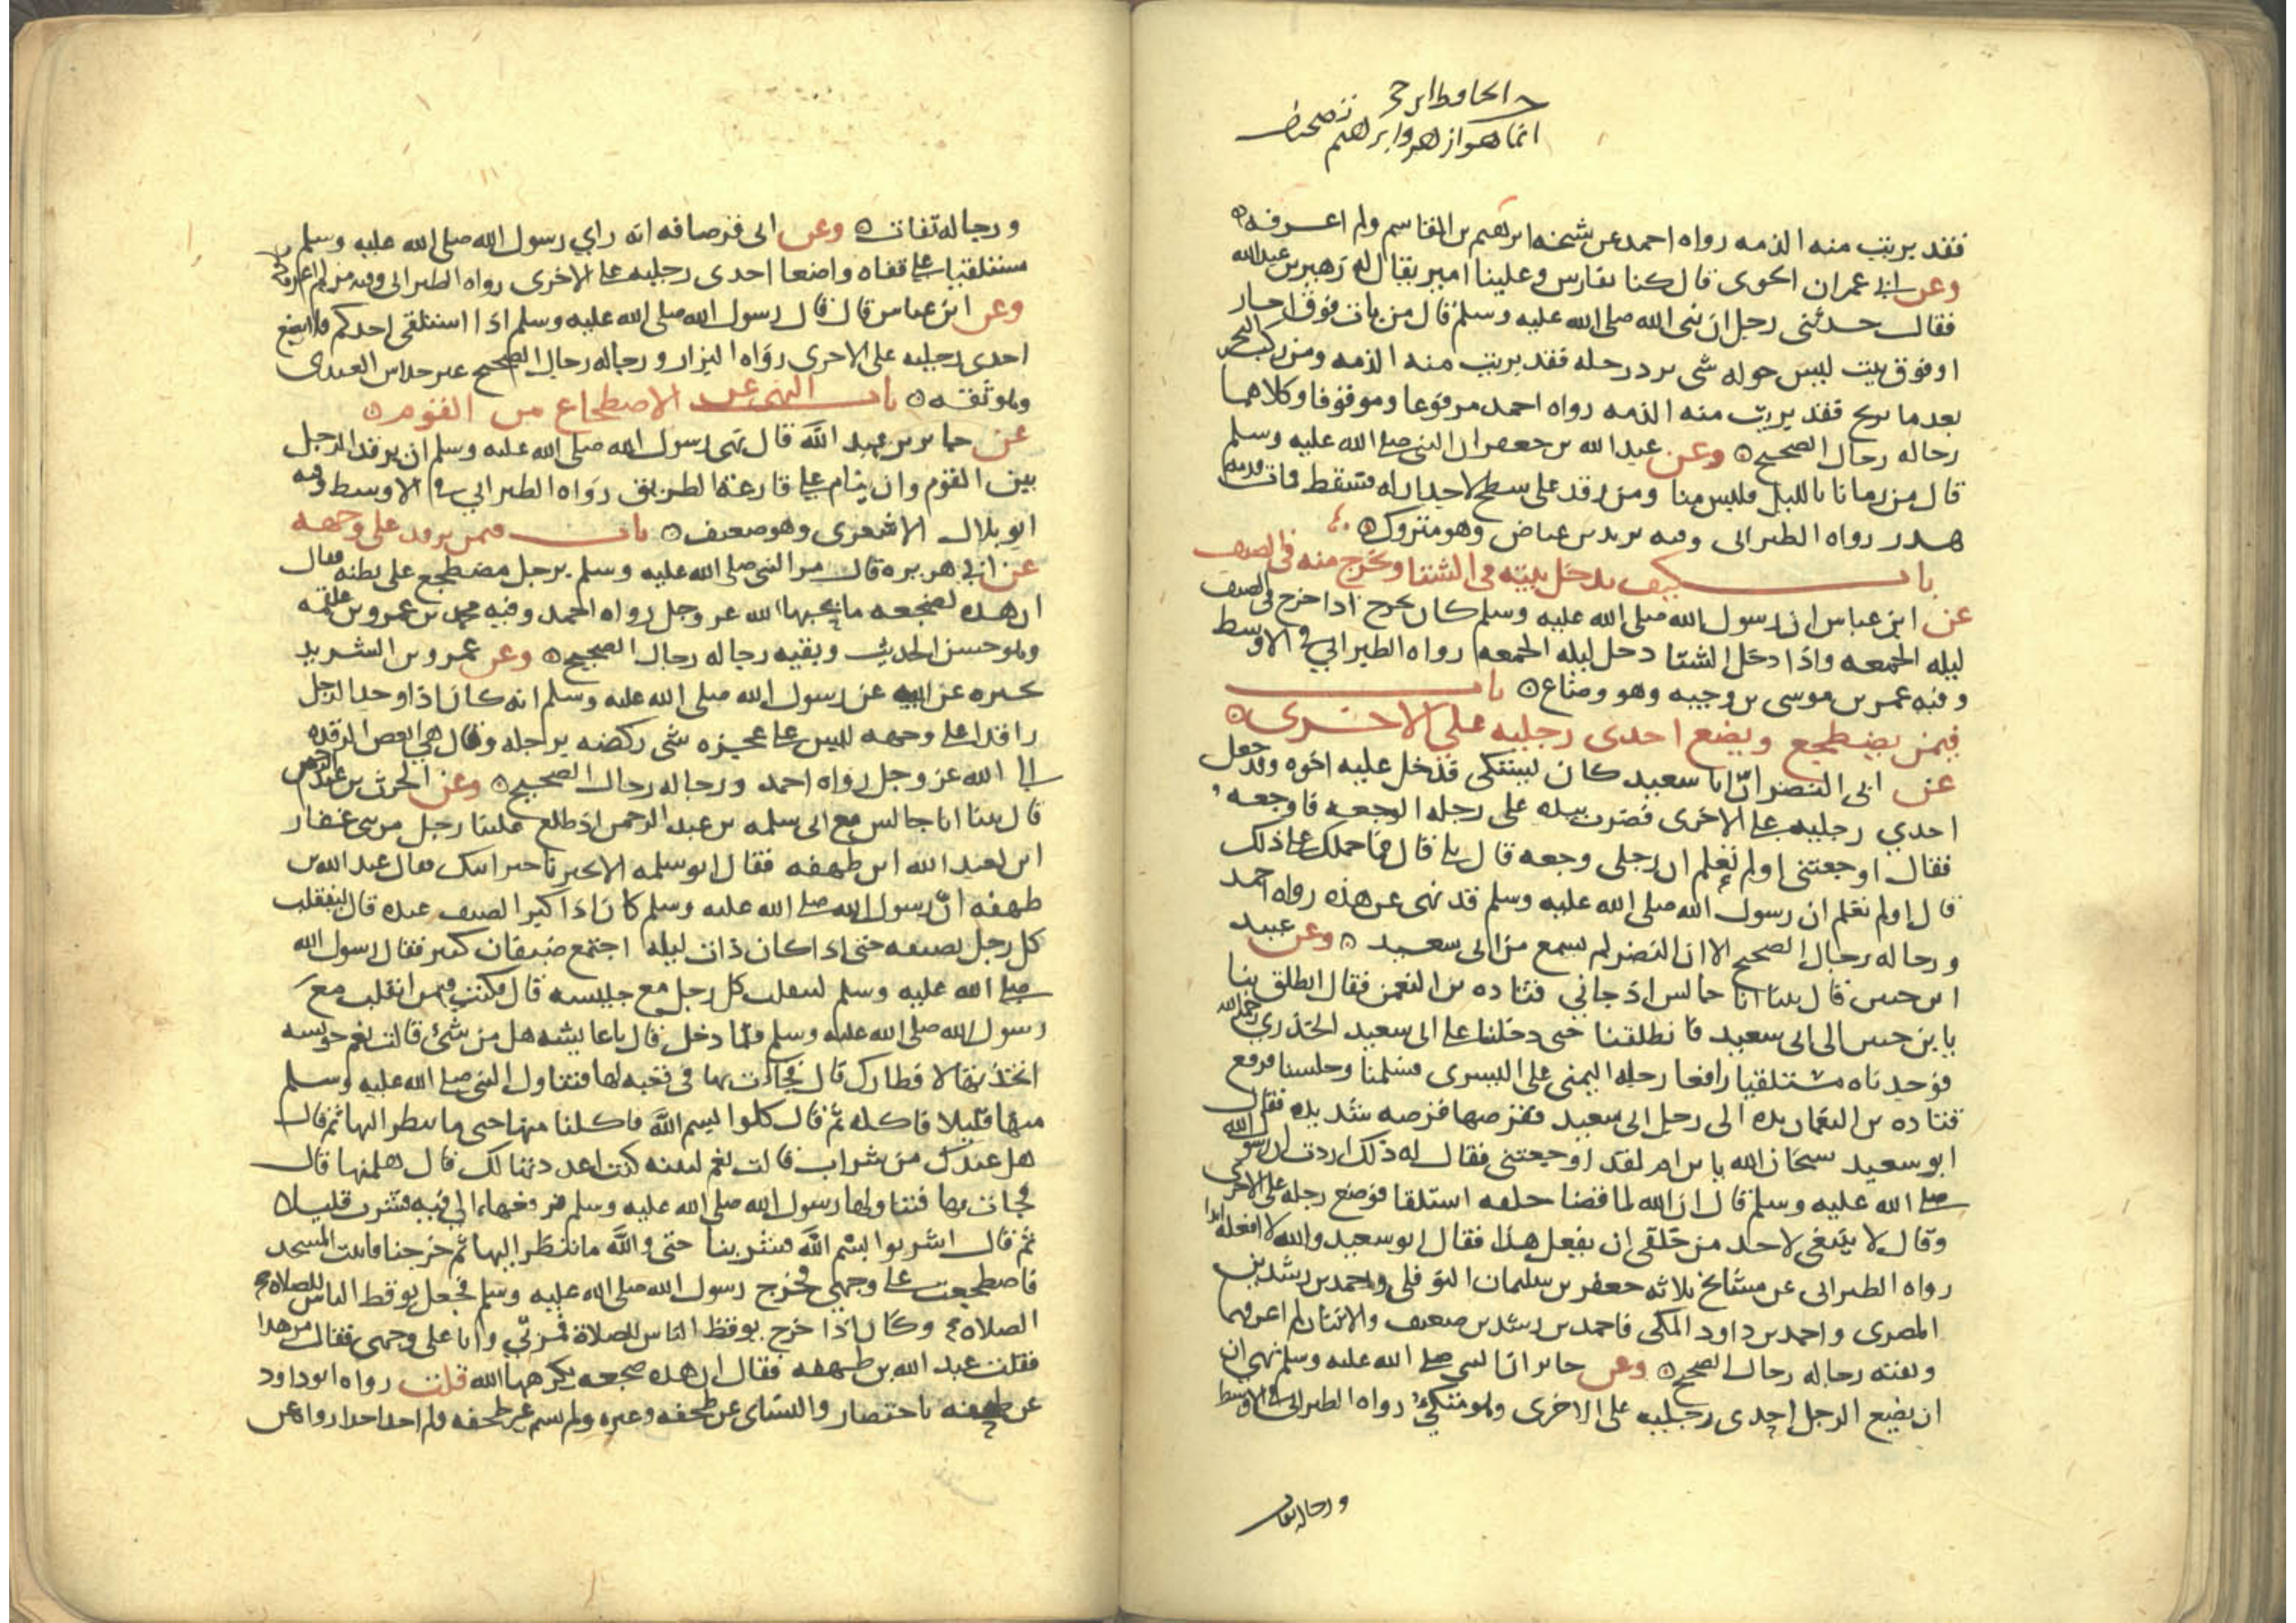 الحافظ ابن حجر
انما هو ازهر وابراهيم تصحيف
فقد بريت منه الذمه رواه احمد عن شيخه ابراهيم بن القاسم ولم اعرفه
وعن ابي عمران الجوني قال كنا بفارس وعلينا امير يقال له زهير بن عبد الله
فقال حدثني رجل ان نبي الله صلى الله عليه وسلم قال من بات فوق اجار
او فوق بيت ليس حوله شي يرد رجله فقد بريت منه الذمه ومن ركب البحر
بعد ما يرتج فقد بريت منه الذمه رواه احمد مرفوعا وموقوفا وكلاهما
رجاله رجال الصحيح وعن عبد الله بن جعفر ان النبي صلى الله عليه وسلم
قال من رمانا بالليل فليس منا ومن رقد على سطح لا جدار له فسقط فمات فدمه
هدر رواه الطبراني وفيه يزيد بن عياض وهو متروك
باب كيف يدخل بيته في الشتا ويخرج منه في الصيف
عن ابن عباس ان رسول الله صلى الله عليه وسلم كان يخرج اذا خرج في الصيف
ليله الجمعه واذا دخل الشتا دخل ليله الجمعه رواه الطبراني في الاوسط
وفيه عمر بن موسى بن وجيه وهو وضاع باب
فيمن يضطجع ويضع احدى رجليه على الاخرى
عن ابي النضر ان ابا سعيد كان يشتكي فدخل عليه اخوه وقد جعل
احدي رجليه على الاخرى فضرب بيده على رجله الوجعه فاوجعه
فقال اوجعتني اولم تعلم ان رجلي وجعه قال بلى قال فما حملك على ذلك
قال اولم تعلم ان رسول الله صلى الله عليه وسلم قد نهى عن هذه رواه احمد
ورجاله رجال الصحيح الا ان النضر لم يسمع من ابي سعيد وعن عبيد
ابن حنين قال بينا انا جالس اذ جاني قتاده بن النعمن فقال انطلق بنا
يا بن حنين الى ابي سعيد فانطلقنا حتى دخلنا على ابي سعيد الخدري رضي الله
فوجدناه مستلقيا رافعا رجله اليمنى على اليسرى فسلمنا وجلسنا فرفع
قتاده بن النعمان يده الى رجل ابي سعيد فقرصها قرصه شديده فقال
ابو سعيد سبحان الله يا بن ام لقد اوجعتني فقال له ذلك اردت ان رسول الله
صلى الله عليه وسلم قال ان الله لما قضا خلقه استلقا فوضع رجله على الاخرى
وقال لا ينبغي لاحد من خلقي ان يفعل هذا فقال ابو سعيد والله لا افعله ابدا
رواه الطبراني عن مشايخ ثلاثه جعفر بن سليمان النوفلي واحمد بن رشدين
المصري واحمد بن داود المكي فاحمد بن رشدين ضعيف والاثنان لم اعرفهما
وبقيته رجاله رجال الصحيح وعن جابر ان النبي صلى الله عليه وسلم نهى ان
ان يضع الرجل احدى رجليه على الاخرى وهو متكئ رواه الطبراني في الاوسط
ورجاله ثقات
ورجاله ثقات وعن ابي قرصافه انه راي رسول الله صلى الله عليه وسلم
مستلقيا على قفاه واضعا احدى رجليه على الاخرى رواه الطبراني وفيه من لم اعرفه
وعن ابن عباس قال قال رسول الله صلى الله عليه وسلم اذا استلقى احدكم فلا يضع
احدى رجليه على الاخرى رواه البزار ورجاله رجال الصحيح غير خداش العبدى
وهو ثقه باب النهي عن الاضطجاع بين القوم
عن جابر بن عبد الله قال نهى رسول الله صلى الله عليه وسلم ان يرقد الرجل
بين القوم وان ينام على قارعة الطريق رواه الطبراني في الاوسط وفيه
ابو بلال الاشعرى وهو ضعيف باب فيمن يرقد على وجهه
عن ابي هريره قال مر النبي صلى الله عليه وسلم برجل مضطجع على بطنه فقال
ان هذه لضجعه ما يحبها الله عز وجل رواه احمد وفيه محمد بن عمرو بن علقمه
وهو حسن الحديث وبقيه رجاله رجال الصحيح وعن عمرو بن الشريد
يخبره عن ابيه عن رسول الله صلى الله عليه وسلم انه كان اذا وجد الرجل
راقدا على وجهه ليس على عجيزه شي ركضه برجله وقال هي ابغض الرقده
الى الله عز وجل رواه احمد ورجاله رجال الصحيح وعن الحرث بن عبد الرحمن
قال بينا انا جالس مع ابي سلمه بن عبد الرحمن اذ طلع علينا رجل من بني غفار
ابن لعبد الله ابن طهفه فقال ابو سلمه الا تخبرنا خبر ابيك فقال عبد الله بن
طهفه ان رسول الله صلى الله عليه وسلم كان اذا كثر الضيف عنده قال لينقلب
كل رجل بضيفه حتى اذا كان ذات ليله اجتمع ضيفان كثير فقال رسول الله
صلى الله عليه وسلم لينقلب كل رجل مع جليسه قال فكنت فيمن انقلب مع
رسول الله صلى الله عليه وسلم فلما دخل قال يا عايشه هل من شئ قالت نعم حويسه
اتخذتها لافطارك قال فجاءت بها في قعبه لها فتناول النبي صلى الله عليه وسلم
منها قليلا فاكله ثم قال كلوا بسم الله فاكلنا منها حتى ما ننظر اليها ثم قال
هل عندك من شراب قالت نعم لبينه كنت اعددتها لك قال هلميها قال
فجات بها فتناولها رسول الله صلى الله عليه وسلم فرفعها الى فيه فشرب قليلا
ثم قال اشربوا بسم الله فشربنا حتى والله ما ننظر اليها ثم خرجنا فاتيت المسجد
فاضطجعت على وجهي فخرج رسول الله صلى الله عليه وسلم فجعل يوقظ الناس للصلاه
الصلاه وكان اذا خرج يوقظ الناس للصلاة فمر بي وانا على وجهي فقال من هذا
فقلت عبد الله بن طهفه فقال ان هذه ضجعه يكرهها الله قلت رواه ابو داود
عن طهفه باختصار والنساى عن طخفه وغيره ولم يسم غير طخفه ولم اجد احدا رواه عن